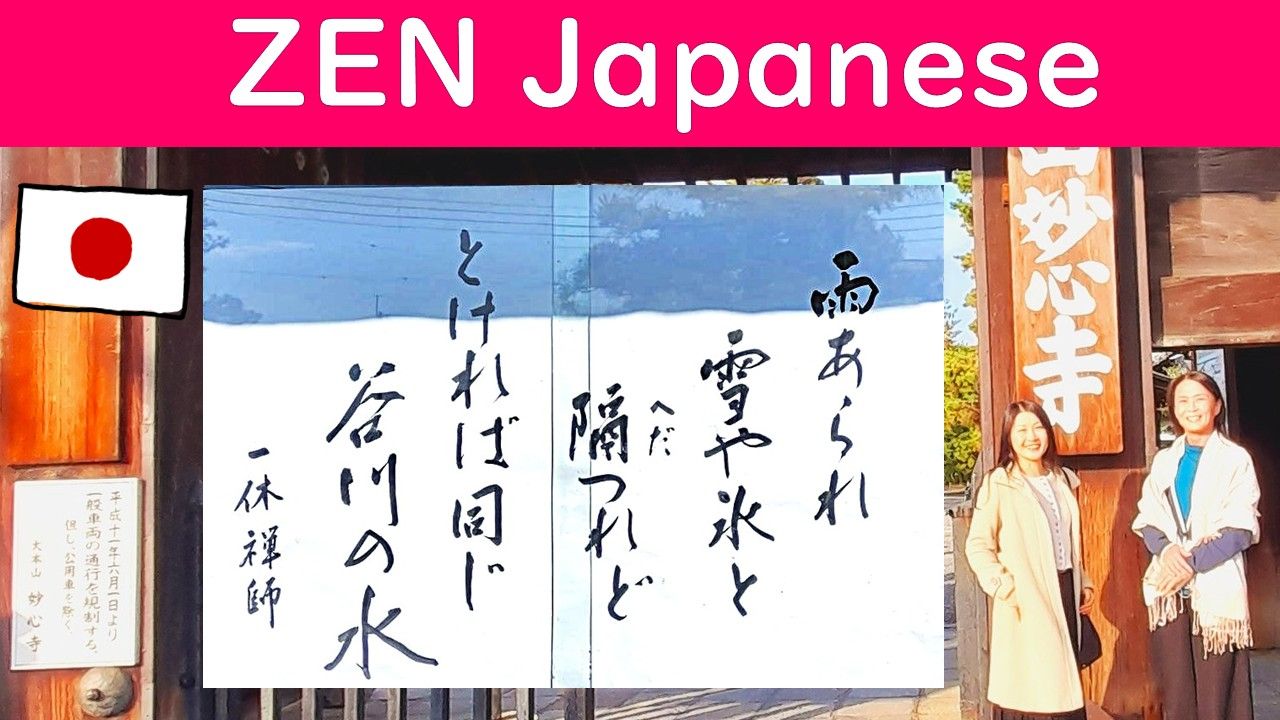 ZEN Japanese
山妙心寺
雨あられ
雪や氷と
へだ
隔つれど
とければ同じ
谷川の水
一休禅師
平成十一年六月一日より
一般車両の通行を規制する、
但し、公用車を除く、
大本山 妙心寺